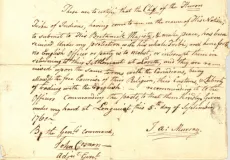 These are to certify that the Chief of the Huron
Tribe of Indians, having come to me in the name of His Nation
to submit to His Britannick Majesty & make peace, has been
received under my protection with his whole Tribe, and henceforth
no English Officer or party is to molest or interrupt them in
returning to their Settlement at Lorette, and they are
received upon the same terms with the Canadians, being
allowed the free Exercise of their Religion, their Customs and liberty
of trading with the English recommending it to the
Officers Commanding the Posts to treat them kindly. Given
under my hand at Longueil this 5th day of September
1760
By the Genl's Command
John Cosnan
Adjut Genl
Ja: Murray